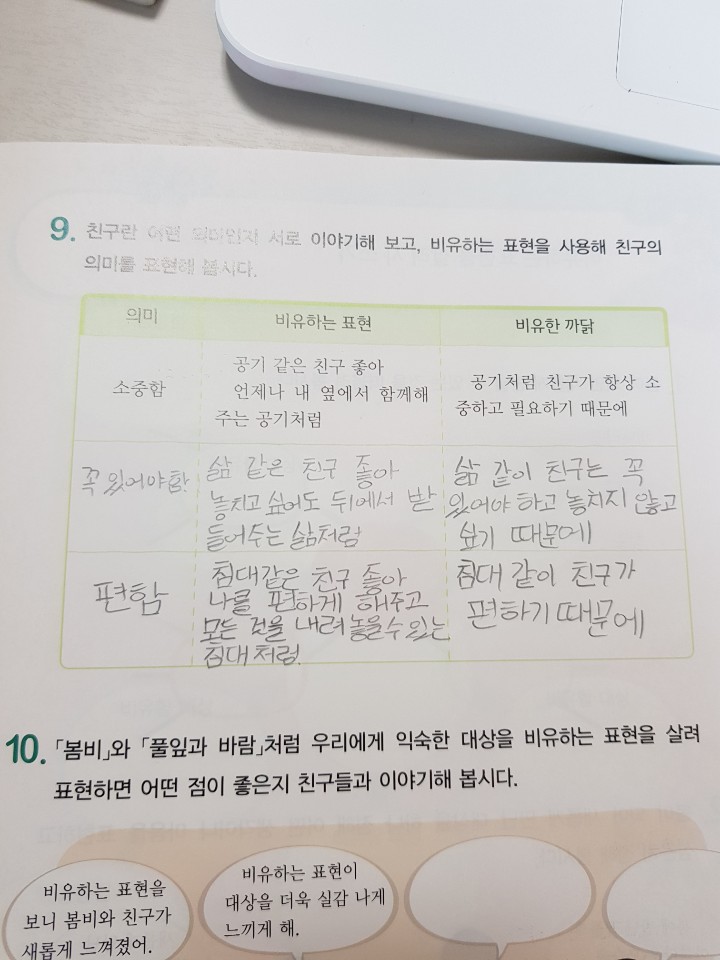 9. 친구란 어떤 의미인지 서로 이야기해 보고, 비유하는 표현을 사용해 친구의
의미를 표현해 봅시다.
의미
비유하는 표현
비유한 까닭
소중함
공기 같은 친구 좋아
언제나 내 옆에서 함께해
주는 공기처럼
공기처럼 친구가 항상 소
중하고 필요하기 때문에
꼭 있어야 함
삶 같은 친구 좋아
놓치고 싶어도 뒤에서 받
들어주는 삶처럼
삶 같이 친구는 꼭
있어야 하고 놓치지 않고
싶기 때문에
편함
침대같은 친구 좋아
나를 편하게 해주고
모든 것을 내려놓을수 있는
침대처럼.
침대 같이 친구가
편하기 때문에
10. 「봄비」와 「풀잎과 바람」처럼 우리에게 익숙한 대상을 비유하는 표현을 살려
표현하면 어떤 점이 좋은지 친구들과 이야기해 봅시다.
비유하는 표현을
보니 봄비와 친구가
새롭게 느껴졌어.
비유하는 표현이
대상을 더욱 실감 나게
느끼게 해.